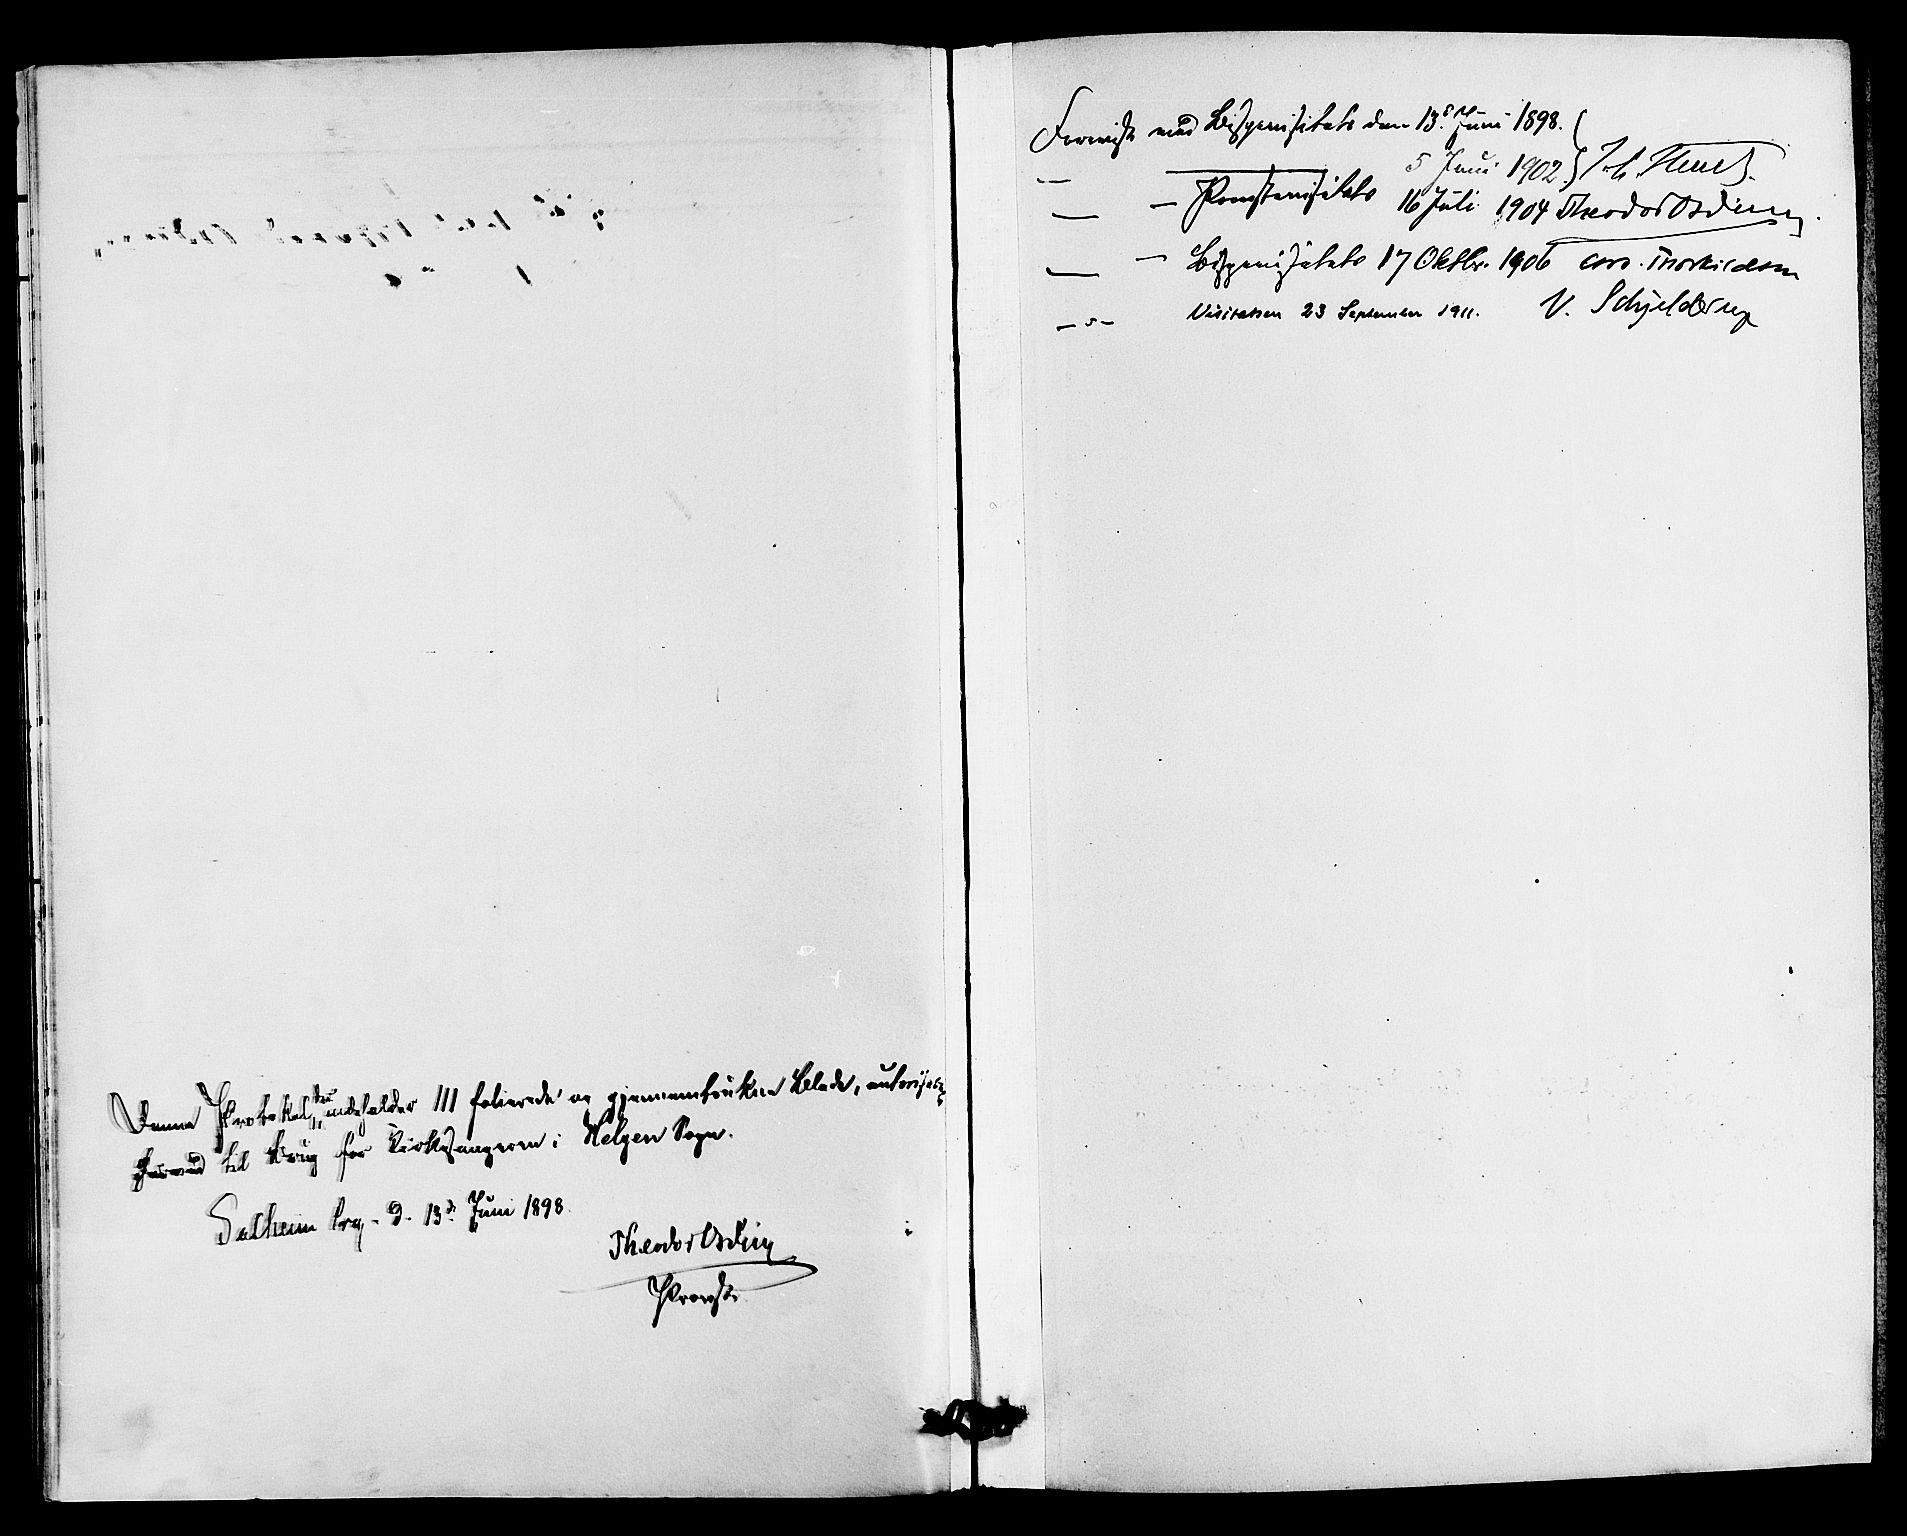 Denne Protokol, der indeholder 111 folierede og gjennemtrukne Blade, autorise-
res til Brug for Kirkesangeren i Helgen Sogn.
d. 13de Juni 1898.
Theodor Østling
Provst.
Forevist ved Bispevisitats den 13de Juni 1898.
— 5 Juni 1902.
— — Provstevisitats 16 Juli 1904 Theodor Østling.
— — Bispevisitats 17 Oktbr. 1906 Chrs. Thorkildsen
— " — Visitatsen 23 September 1911. V. Schjelderup